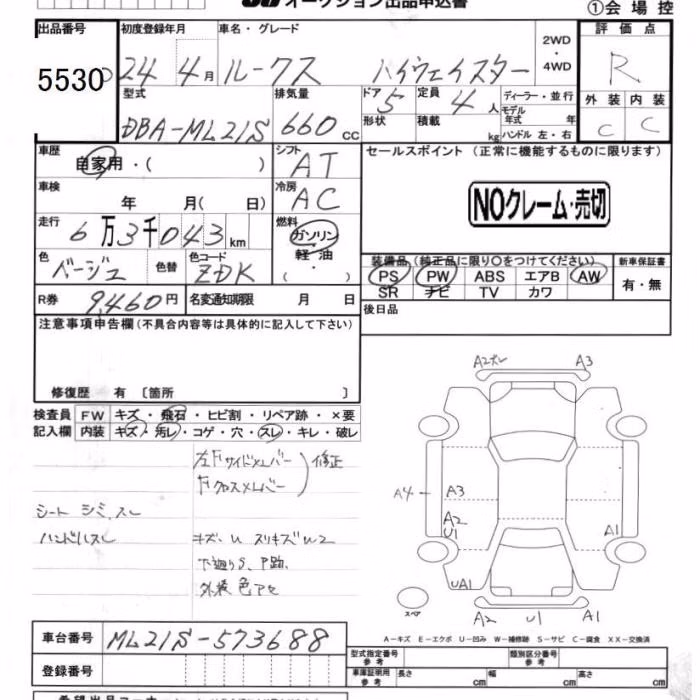 オークション出品申込書
①会場控
出品番号 初度登録年月 車名・グレード 2WD・4WD 評価点
5530 24年4月 ルークス ハイウェイスター R
型式 排気量 ドア 5 定員 4人 ディーラー・並行
DBA-ML21S 660cc 形状 積載 kg モデル年式 年 ハンドル 左・右
外装 内装
C C
車歴 自家用・( ) シフト AT
車検 年 月(日) 冷房 AC
走行 6万3千043km 燃料 ガソリン 軽油
色 ベージュ 色替 色コード ZDK
R券 9,460円 名変通知期限 月 日
セールスポイント (正常に機能するものに限ります)
NOクレーム・売切
装備品(純正品に限り○をつけてください) 新車保証書
PS PW ABS エアB AW 有・無
SR ナビ TV カワ
後日品
注意事項申告欄(不具合内容等は具体的に記入して下さい)
修復歴 有 〔箇所 〕
検査員 FW キズ・飛石・ヒビ割・リペア跡・×要
記入欄 内装 キズ・汚レ・コゲ・穴・スレ・キレ・破レ
左Fサイドメンバー
Fクロスメンバー
修正
シート シミ,スレ
ハンドルスレ
キズ、U スリキズU2
下廻りS、P跡、
外装 色アセ
A2ホレ A3
A4 A3
A2
U1
A1
UA1
スペア
A2 U1 A1
A-キズ E-エクボ U-凹み W-補修跡 S-サビ C-腐食 XX-交換済
車台番号 ML21S-573688
登録番号
型式指定番号 参考 類別区分番号 参考
車庫証明用 参考 長さ cm 幅 cm 高さ cm
希望出品コーナー